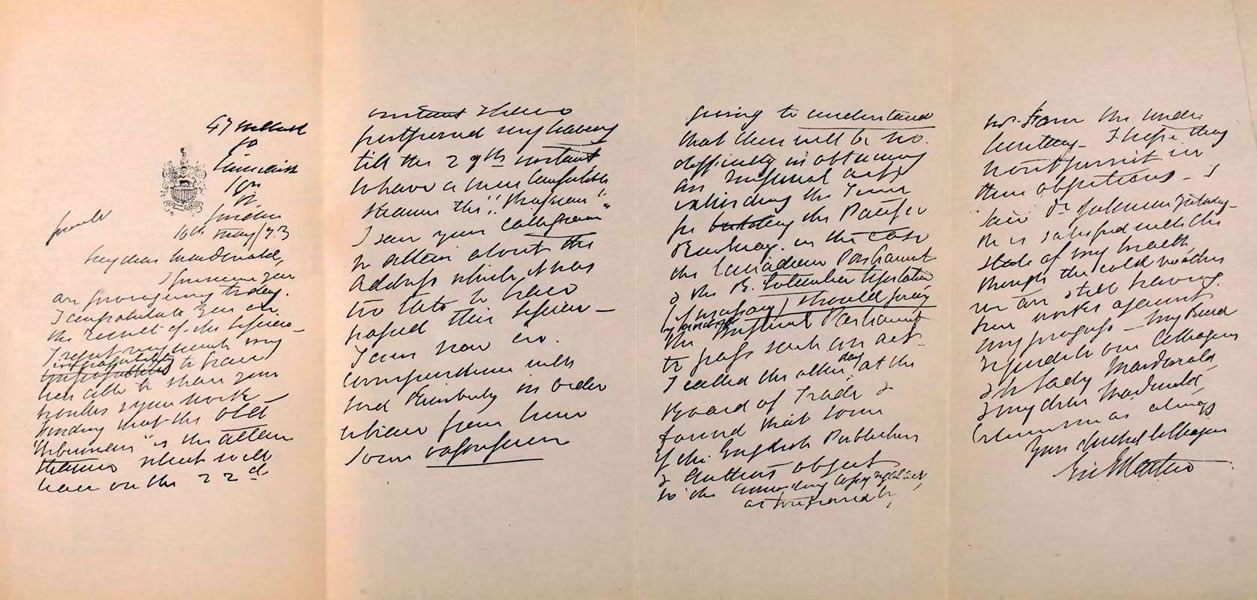 47 Welbeck
St
Cavendish
Sqre
W.
London
10th May/73
Private
My dear Macdonald,
I presume you
are proroguing today.
I congratulate you on
the result of the session –
I regret very much my
impossibility to have
been able to share your
troubles & your work –
finding that the old
"Prussian" is the Allan
steamer which will
leave on the 22d
instant I have
postponed my leaving
till the 29th instant
to have a more comfortable
steamer the
I saw your cablegram
to Allan about the
address which it was
too late to have
passed this session –
I am now in
correspondence with
Lord Kimberley in order
to have from him
some expression
giving to understand
that there will be no
difficulty in obtaining
an Imperial act
extending the Time
for building the Pacific
Railway in the case
the Canadian Parliament
& the B. Columbia legislature
(if necessary) should join
by address
the Imperial Parliament
to pass such an act –
I called the other day at the
Board of Trade &
found that some
of the English Publishers
& Authors object
to the Canadian Copyright act
as prepared by
us from the under
writing – I hope they
wont persist in
their objections – I
saw Dr Johnson yesterday –
He is satisfied with the
state of my health
though the cold weather
we are still having
here works against
my progress – My kind
regards to our Colleagues
& to Lady Macdonald
& my dear Macdonald,
believe me as always
Your devoted Colleague
Geo E Cartier